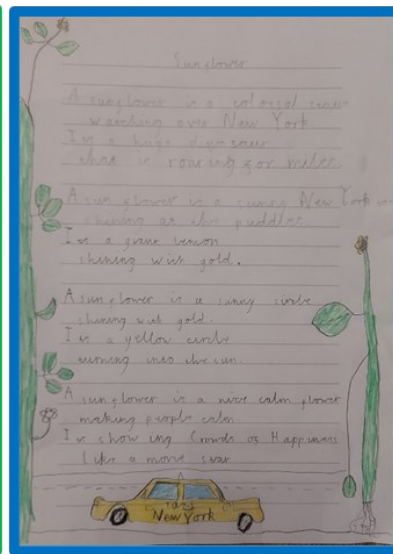 Sunflower
A sunflower is a colossal
watching over New York
I'm a huge dinosaur
that is roaring for miles
A sun flower is a sunny New York
shining at the puddles
I'm a giant lemon
shining with gold.
A sunflower is a sunny circle
shining with gold.
I'm a yellow circle
turning into the sun.
A sunflower is a nice calm flower
making people calm
I'm showing Crowds of Happiness
like a movie star
TAXI
New York